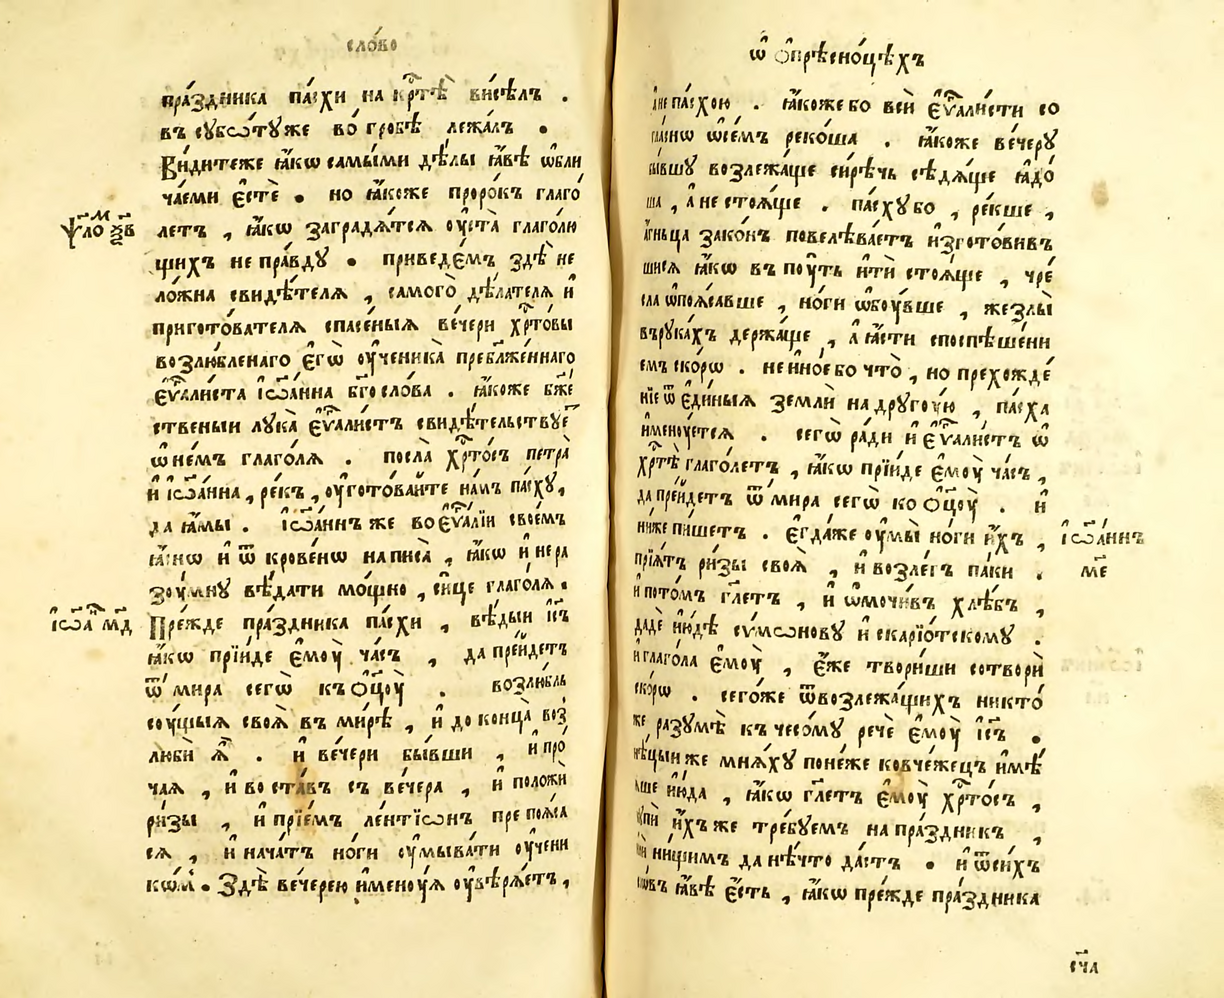 сло́во
пра́здника па́схи на кр҇тѣ̀ висѣ́лъ .
въ сꙋбѡ́тꙋже во́ гробѣ лежа́лъ .
Ви́дитеже ꙗ҆́кѡ самы́ми дѣ́лы ꙗ҆́вѣ ѡ҆бли
чаеми є҆стѐ . но ꙗ҆́коже проро́къ глаго́
ѱ҃ло м҃ ѯ҃в
летъ , ꙗ҆́кѡ заградѧ́тсѧ оу҆ста̀ глаго́лю
щихъ не пра́вдꙋ . приведе́мъ здѣ̀ не
ло́жна свидѣ́телѧ , самого̀ дѣ́лателѧ и҆
пригото́вателѧ спасе́ныѧ ве́чери хр҇то́вы
возлю́бленаго є҆гѡ̀ оу҆ченика̀ пребл҃же́ннаго
є҆ѵ҃али́ста і҆ѡа́нна бг҃осло́ва . ꙗ҆́коже бж҃е
ственыи лꙋка̀ є҆ѵ҃али́стъ свидѣ́тельствꙋе
ѡ҆ не́мъ глаго́лѧ . посла̀ хр҇то́съ петра̀
и҆ і҆ѡа́нна , ре́къ , оу҆гото́вайте на́мъ па́схꙋ ,
да ꙗ҆́мы . і҆ѡа́ннъ же во є҆ѵ҃а́лїи свое́мъ
ꙗ҆́снѡ и҆ ѿ кровенѡ написа̀ , ꙗ҆́кѡ и҆ нера
зоу́мнꙋ вѣ́дати мо́щно , си́це глаго́лѧ .
і҆ѡа҃ м҃д
Пре́жде пра́здника па́схи , вѣ́дыи і҆с҃ъ
ꙗ҆́кѡ прїи́де є҆моу̀ ча́съ , да пре́йдетъ
ѿ ми́ра сегѡ̀ къ ѻ҆ц҃оу̀ . возлю́бль
соу́щыѧ своѧ̀ въ ми́рѣ , и҆ до конца̀ воз
любѝ ѧ҆̀ . и҆ ве́чери бы́вши , и҆ про́
чаѧ , и҆ воста́въ съ ве́чера , и҆ положѝ
ри́зы , и҆ прїе́мъ ле́нтїѡнъ препоѧ́са
сѧ , и҆ нача́тъ но́ги оу҆мыва́ти оу҆чени
кѡ́мъ . Здѣ̀ ве́черею и҆меноу́ѧ оу҆вѣрѧ́етъ ,
ѡ҆ ѻ҆прѣсно́цѣхъ
а҆ не па́схою . ꙗ҆́коже бо всѝ є҆ѵ҃али́сти со
гла́снѡ ѡ҆ се́мъ реко́ша . ꙗ҆́коже ве́черꙋ
бы́вшꙋ возлежа́ще си́рѣчь сѣдѧ́ще ꙗ҆до́
ша , а҆ не стоѧ́ще . па́схꙋ бо , ре́кше ,
а҆́гньца зако́нъ повелѣва́етъ и҆згото́вивъ
шисѧ ꙗ҆́кѡ въ поу́ть и҆тѝ стоѧ́ще , чре́
сла ѡ҆поѧ́савше , но́ги ѡ҆боу́вше , жезлы̀
в рꙋка́хъ держа́ще , а҆ ꙗ҆́сти споспѣше́ни
емъ ско́рѡ . не и҆но́е бо что̀ , но прехожде́
нїе ѿ є҆ди́ныѧ землѝ на дрꙋгоу́ю , па́сха
и҆меноу́етсѧ . сегѡ̀ ра́ди и҆ є҆ѵ҃али́стъ ѡ҆
хр҇тѣ̀ глаго́летъ , ꙗ҆́кѡ прїи́де є҆моу̀ ча́съ ,
да пре́йдетъ ѿ ми́ра сегѡ̀ ко ѻ҆ц҃оу̀ . и҆
ни́же пи́шетъ . є҆гда́же оу҆мы̀ но́ги и҆́хъ ,
і҆ѡа́ннъ
м҃е
прїѧ́тъ ри́зы своѧ̀ , и҆ возле́гъ па́ки .
и҆ пото́мъ гл҃етъ , и҆ ѡ҆мочи́въ хлѣ́бъ ,
дадѐ и҆ю́дѣ си́мѡновꙋ и҆скарїо́тскомꙋ .
и҆ глаго́ла є҆моу̀ , є҆́же твори́ши сотворѝ
ско́рѡ . сего́же ѿ возлежа́щихъ никто́
же разꙋмѣ̀ къ чесо́мꙋ речѐ є҆моу̀ і҆с҃ъ .
нѣ́цыи же мнѧ́хꙋ поне́же ковче́жецъ и҆мѣ́
ѧше и҆ю́да , ꙗ҆́кѡ гл҃етъ є҆моу̀ хр҇то́съ ,
кꙋпѝ и҆́хъже тре́бꙋемъ на пра́здникъ ,
и҆лѝ ни́щимъ да нѣ́что да́стъ . и҆ ѿ си́хъ
ꙗ҆́вѣ є҆́сть , ꙗ҆́кѡ пре́жде пра́здника
сч҃а